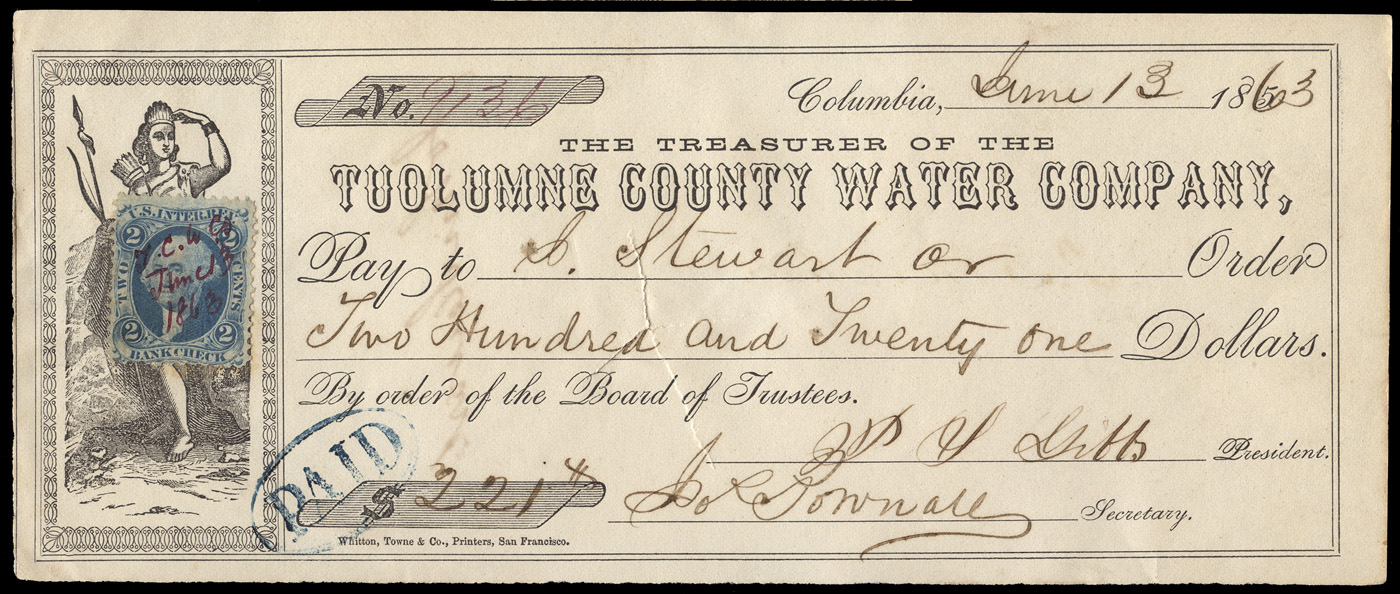 No. 9136
Columbia, June 13 1863
THE TREASURER OF THE
TUOLUMNE COUNTY WATER COMPANY,
Pay to S. Stewart or Order
Two Hundred and Twenty one Dollars.
By order of the Board of Trustees.
Gibbs President.
$ 221 Jos Pownall Secretary.
Whitton, Towne & Co., Printers, San Francisco.
PAID
U.S. INTER. REV.
2 2
TWO CENTS
T.C.W Co
June
1863
2 2
BANK CHECK